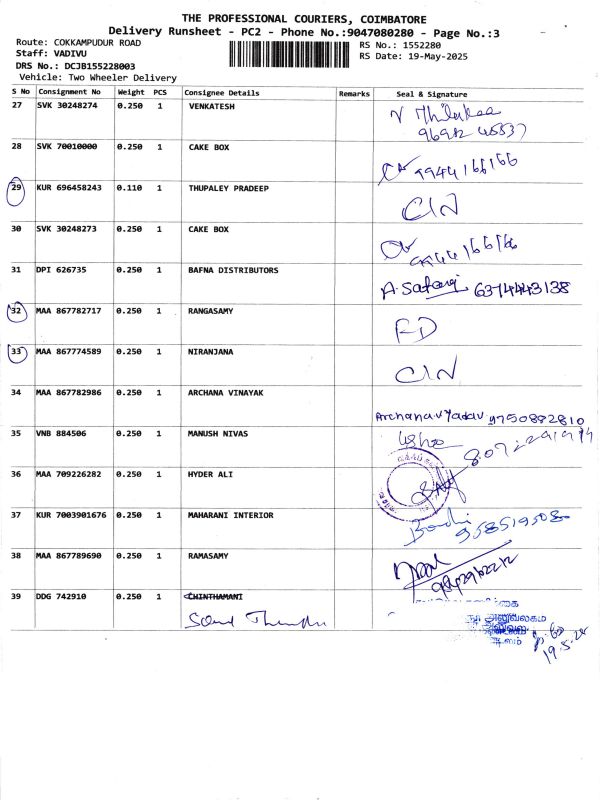 THE PROFESSIONAL COURIERS, COIMBATORE
Delivery Runsheet - PC2 - Phone No.:9047080280 - Page No.:3
Route: COKKAMPUDUR ROAD RS No.: 1552280
Staff: VADIVU RS Date: 19-May-2025
DRS No.: DCJB155228003
Vehicle: Two Wheeler Delivery
S No Consignment No Weight PCS Consignee Details Remarks Seal & Signature
27 SVK 30248274 0.250 1 VENKATESH
28 SVK 70010000 0.250 1 CAKE BOX
9944166166
29 KUR 696458243 0.110 1 THUPALEY PRADEEP
C/N
30 SVK 30248273 0.250 1 CAKE BOX
31 DPI 626735 0.250 1 BAFNA DISTRIBUTORS
6374443138
32 MAA 867782717 0.250 1 RANGASAMY
FD
33 MAA 867774589 0.250 1 NIRANJANA
C/N
34 MAA 867782986 0.250 1 ARCHANA VINAYAK
9750882810
35 VNB 884506 0.250 1 MANUSH NIVAS
36 MAA 709226282 0.250 1 HYDER ALI
37 KUR 7003901676 0.250 1 MAHARANI INTERIOR
38 MAA 867789690 0.250 1 RAMASAMY
39 DDG 742910 0.250 1 CHINTHAMANI